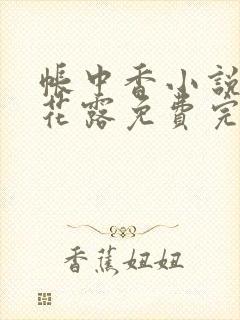 帳中香小說
花露免費完
香蕉妞妞